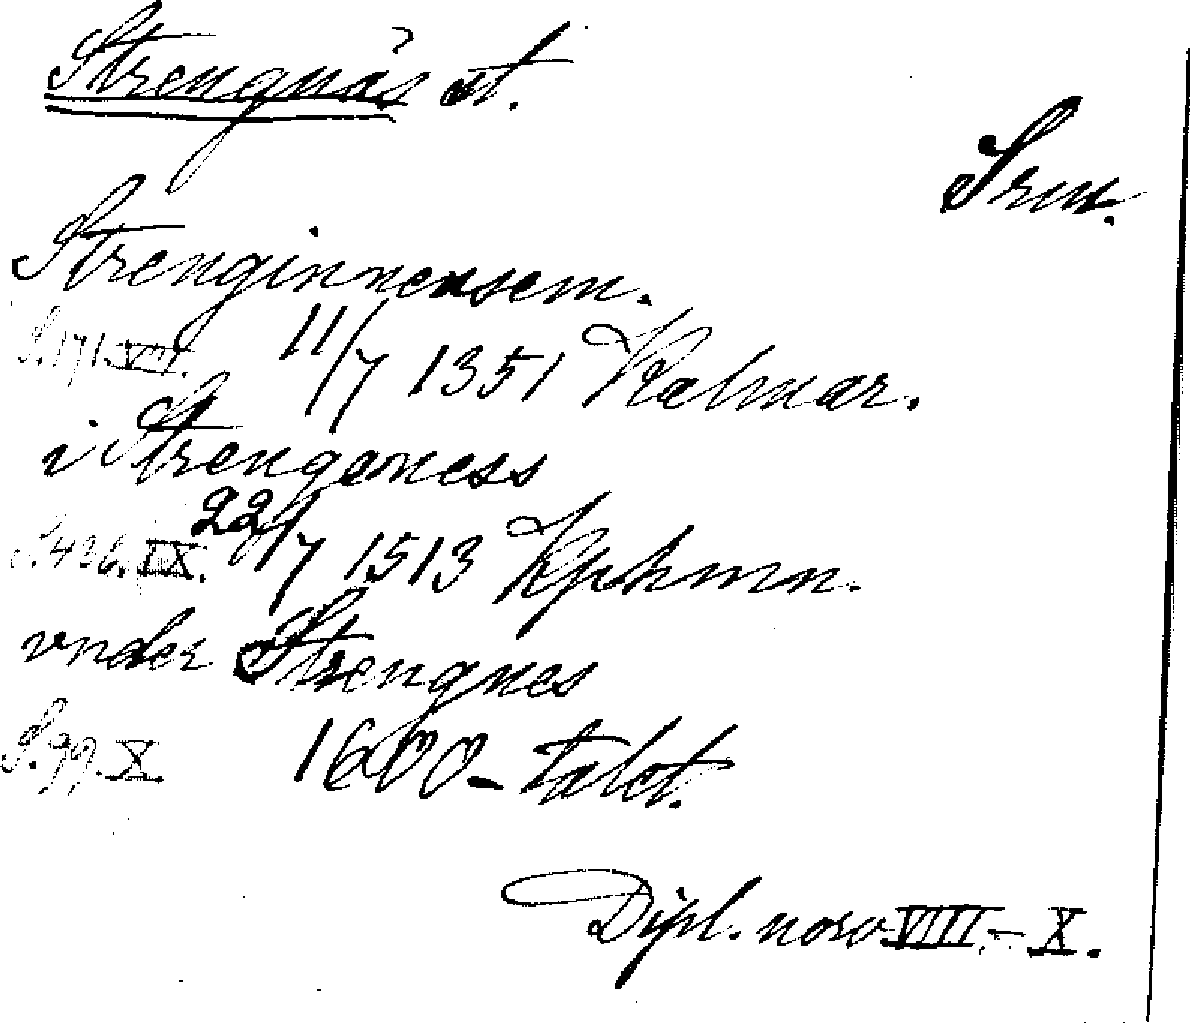 Strengnäs st.
Srm.
Strenginnensem.
S. 171. VIII. 11/7 1351 Kalmar.
i Strengeness
S. 426. IX. 22/7 1513 Kphmn.
vnder Strengnes
S. 99. X. 1600-talet.
Dipl. norv. VIII. - X.